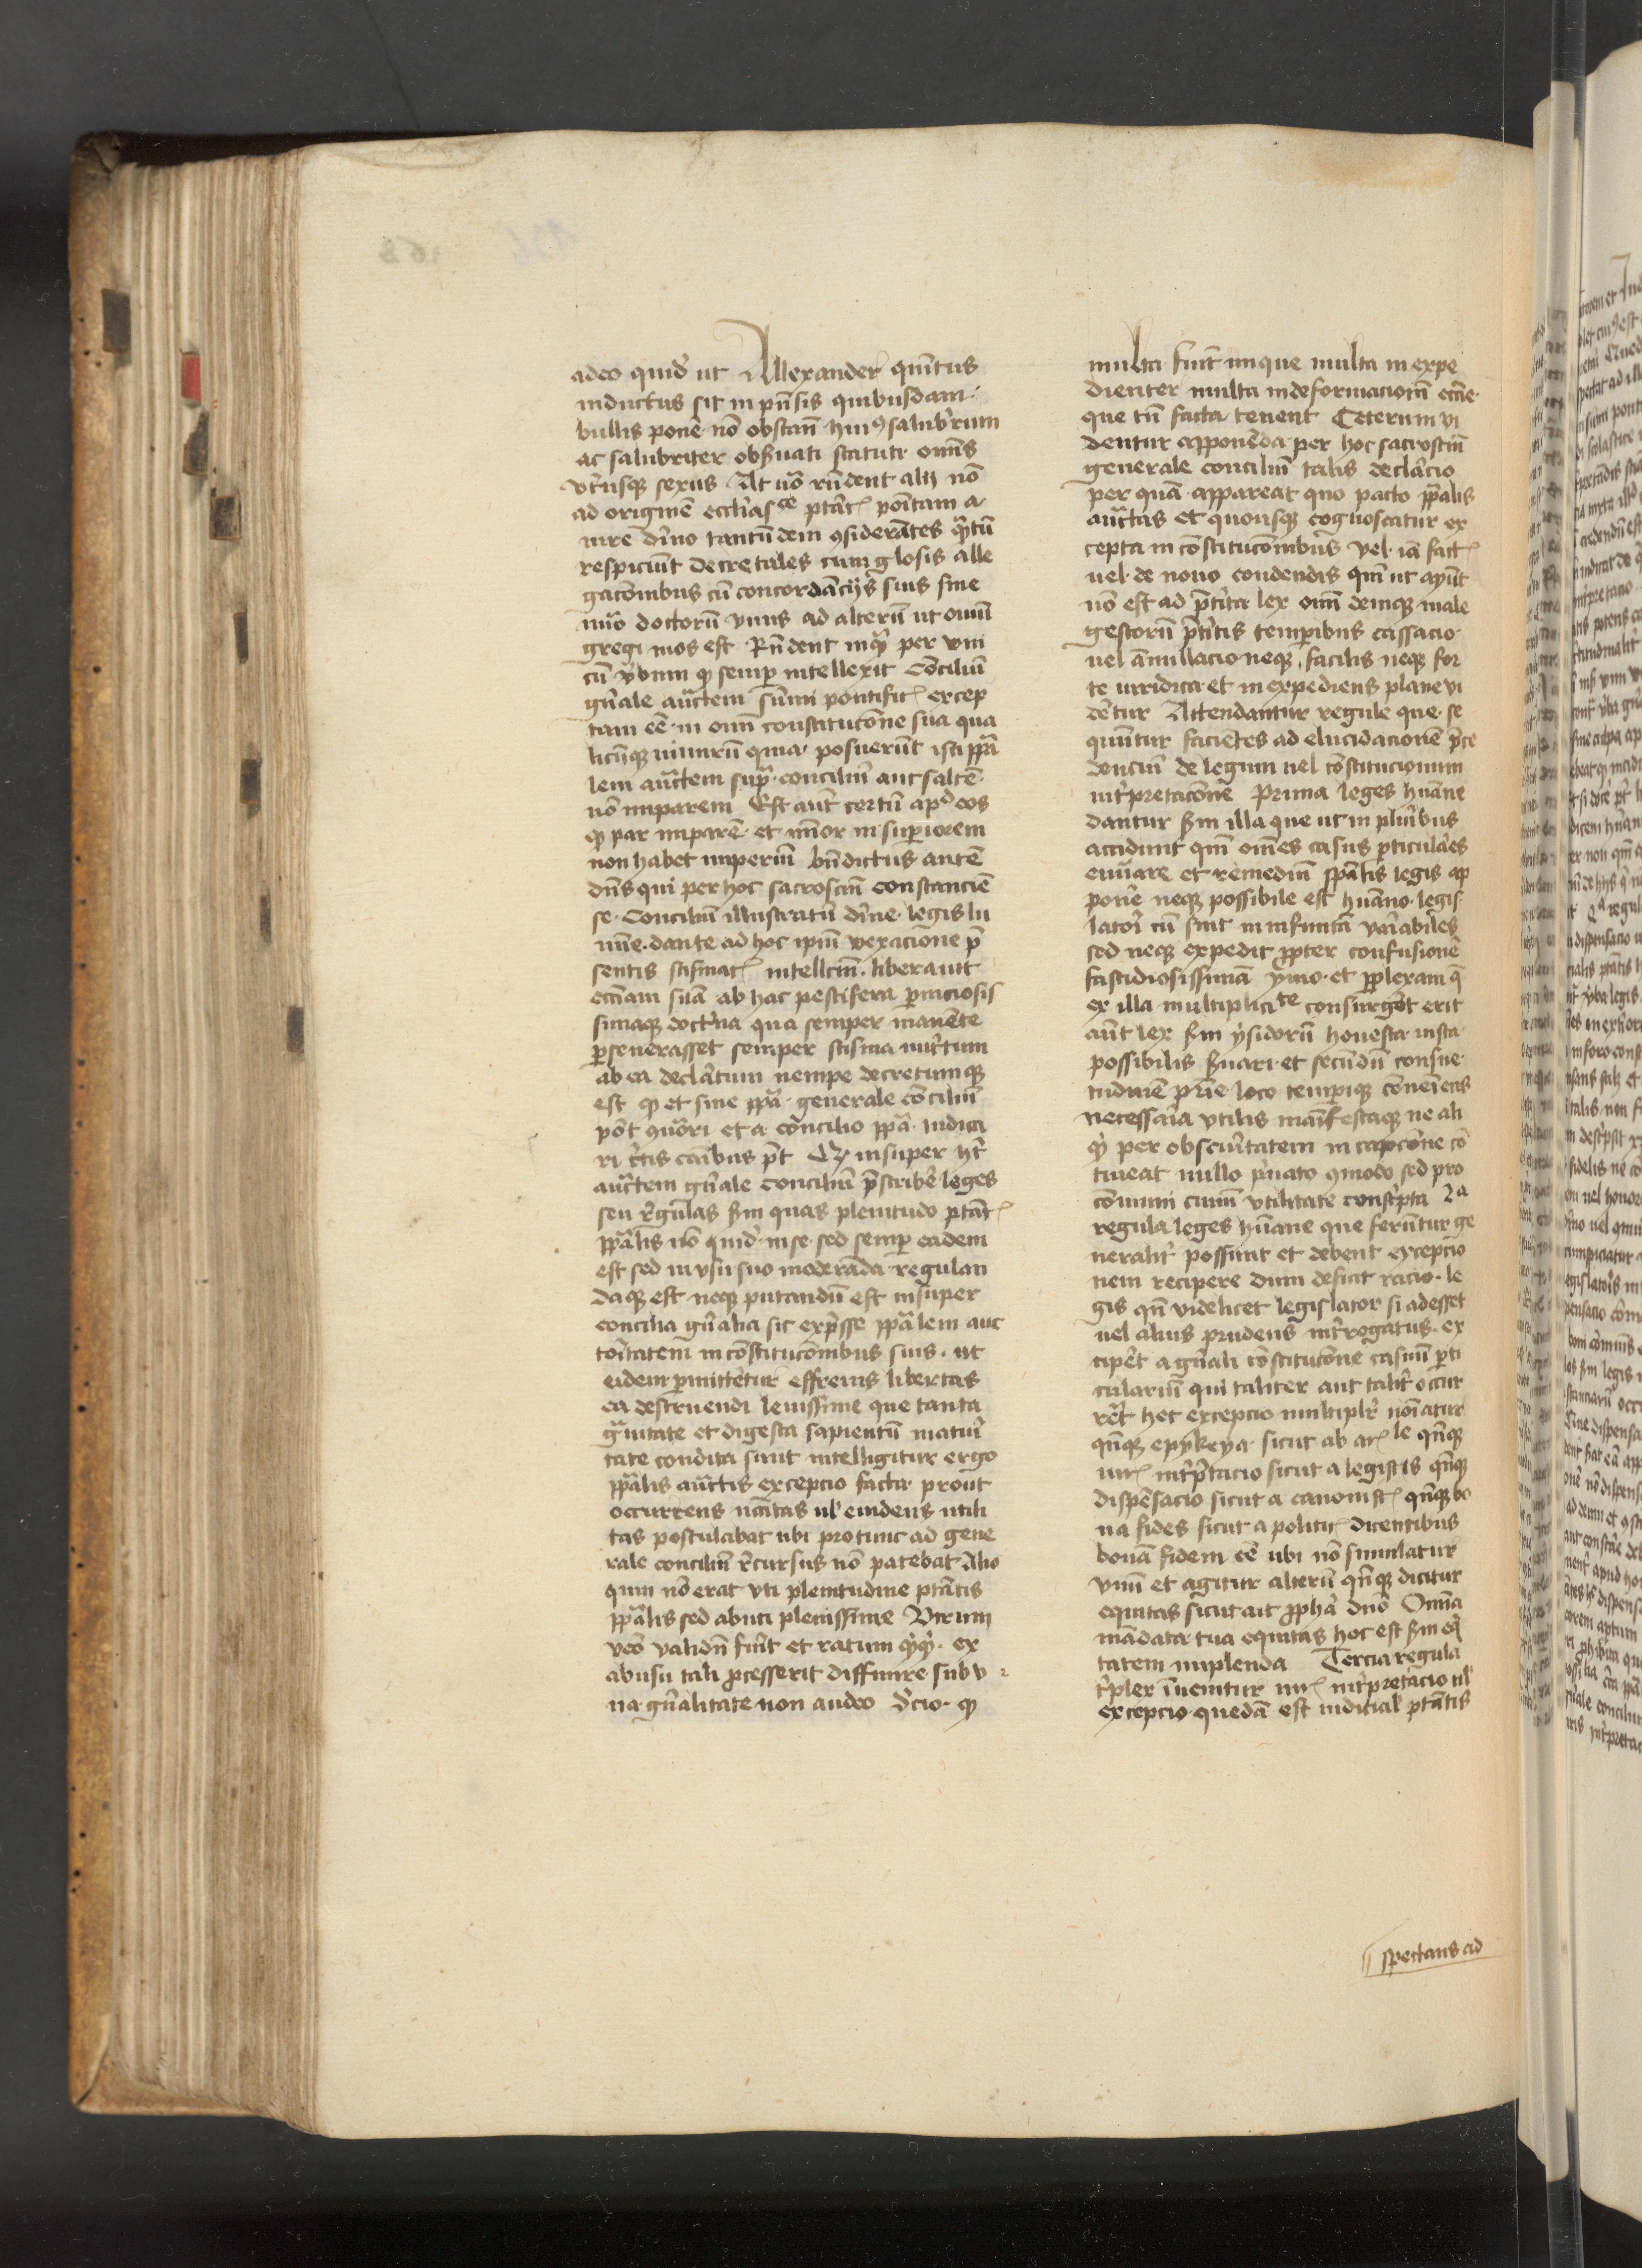 adeo quid̕ ut Allexander quı̄tus
inductus sit in pn̄sis quibusdam
bullis pone nō obstan̄ huiꝰ salub̕rrum
ac salubriter obẜuati statuti om̄s
vtrı̕usqꝫ sexus At uō rn̄dent alij nō
ad originē eccl̕iasce ptāt poı̄tam a
iure dı̄no tantūdem ꝯsiderātes qᷓtū
respiciūt decretales cum glosis alle
gacōnibus cū concordācijs suis siue
nūo doctorū vnus ad alterū ut ouiū
gregi mos est Rn̄dent inqᷓ per vni
cū v̕bum qꝫ semꝑ intellexit Conciliū
gn̄ale auc̄tem sūmi pontific̄ excep
tam eē in om̄i constitucōne sua qua
licūqꝫ nimirū quia posuerūt isti ppᷓa
lem auc̄tem supᷓ conciliū aut saltē
nō imparem Est aut̄ certū apd̕ eos
qꝫ par imparē et mı̄or in suꝑiorem
non habet imperiū bn̄dictus autē
dn̄s qui per hoc sacroscm̄ constancien̄
se Conciliū illustratū dı̄ne legis lu
mı̄e dante ad hoc ipm̄ vexacione p̄
sentis scismat̄ intellcm̄ liberauit
ecc̄iam suā ab hac pestifera ꝑniciosis
simaqꝫ doctı̕na qua semper manēte
ꝑseuerasset semper scisma nut̕tum
ab ea decl̕atum nempe decretumqꝫ
est qꝫ et sine ppᷓa generale cōciliū
pōt ꝯuōri et a concilio ppᷓa iudica
ri c̕tis cāibus pōt Qꝫ insuper hꝫ
auc̄tem gn̄ale conciliū p̄scribe̕ leges
seu r̕gulas ẜm quas plenitudo ptāt̄
ppᷓalis nō quid̕ in se sed semꝑ eadem
est sed in vsu suo moderāda regulan
daqꝫ est neqꝫ putandū est insuper
concilia gn̄alia sic exp̄sse ppᷓalem auc
toı̕tatem in cōstitucōnibus suis ut
eidem ꝑmitteretur effrenis libertas
ea destruendi leuissime que tanta
gᷓuitate et digesta sapientū maturı̕
tate condita sunt intelligitur ergo
ppᷓalis auc̄tis excepcio facta prout
occurrens nc̄c̄itas ul̕ euidens utili
tas postulabat ubi pro tunc ad gene
rale conciliū r̕cursus nō patebat Alio
quin nō erat vti plenitudine ptātis
ppᷓalis sed abuti plenissime Vtrum
veō validū fuı̕t et ratum qꝫqꝫ ex
abusu tali ꝓcesserit diffinire sub v
na gn̄alitate non audeo S̕cio qꝫ
multa fuı̄t inique multa in expe
dienter multa in deformacionē ecc̄ie
que tn̄ facta tenent Ceterum vi
dentur apponēda per hoc sacroscm̄
generale conciliū talis decl̕acio
per quā appareat quo pacto ppᷓalis
auc̄tas et quousqꝫ cognoscatur ex
cepta in cōstitucōnibus vel iā fact̄
uel de nouo condendis qm̄ ut ayūt
nō est ad p̄tı̕ta lex om̄i deniqꝫ male
gestorū p̄tı̕tis temꝑibus cassacio
uel ānullacio neqꝫ facilis neqꝫ for
te iuridica et in expediens plane vi
dētur Attendantur regule que se
quūtur faciētes ad elucidacionē p̄ce
denciū de legum uel cōstitucionum
int̕pretacōne Prima leges hūane
dantur ẜm illa que ut in plı̕ibus
accidunt qm̄ om̄es casus ꝑticulares
enūare et remediū spāl̕is legis ap
pone̕ neqꝫ possibile est hūano legis
latoı̕ cū sint in infinitū vaı̕abiles
sed neqꝫ expedit ꝓpter confusionē
fastidiosissimā ymo et ꝑplexam q̄
ex illa multiplicite consurgēt erit
aūt lex ẜm ysidorū honesta iusta
possibilis ẜuari et secūdū consue
tudinē pr̄ie loco temꝑiqꝫ cōueı̄ens
necessaı̕a vtilis manifestaqꝫ ne ali
qꝫ per obscurı̕tatem in capcōne cō
tineat nullo p̕uato ꝯmodo sed pro
cōmuni ciuiū vtilitate conscı̕pta 2a
regula leges hūane que ferūtur ge
neralit̕ possunt et debent excepcio
nem recipere dum deficit racio le
gis qn̄ videlicet legislator si adesset
uel alius prudens int̕rogatus ex
cipet̕ a gn̄ali cōstitucōne casum ꝑti
cularium qui taliter aut talit̕ occur
ret̕ hec excepcio multiplr̕ noı̄atur
qn̄qꝫ epykeya sicut ab ar̄le qn̄qꝫ
iur̄ int̕p̄tacio sicut a legistis qn̄qꝫ
dispēsacio sicut a canonist̄ qn̄qꝫ bo
na fides sicut a politic̄ dicentibus
bonā fidem eē ubi nō simulatur
vnū et agitur alterū qn̄qꝫ dicitur
equitas sicut ait ꝓpha̕ dn̄o Om̄ia
mādata tua equitas hoc est ẜm eq̕
tatem implenda Tercia regula
t̕pler īuenitur iur̄ int̕pretacio ul̕
excepcio quedā est iudicial̕ ptātis
spectans ad